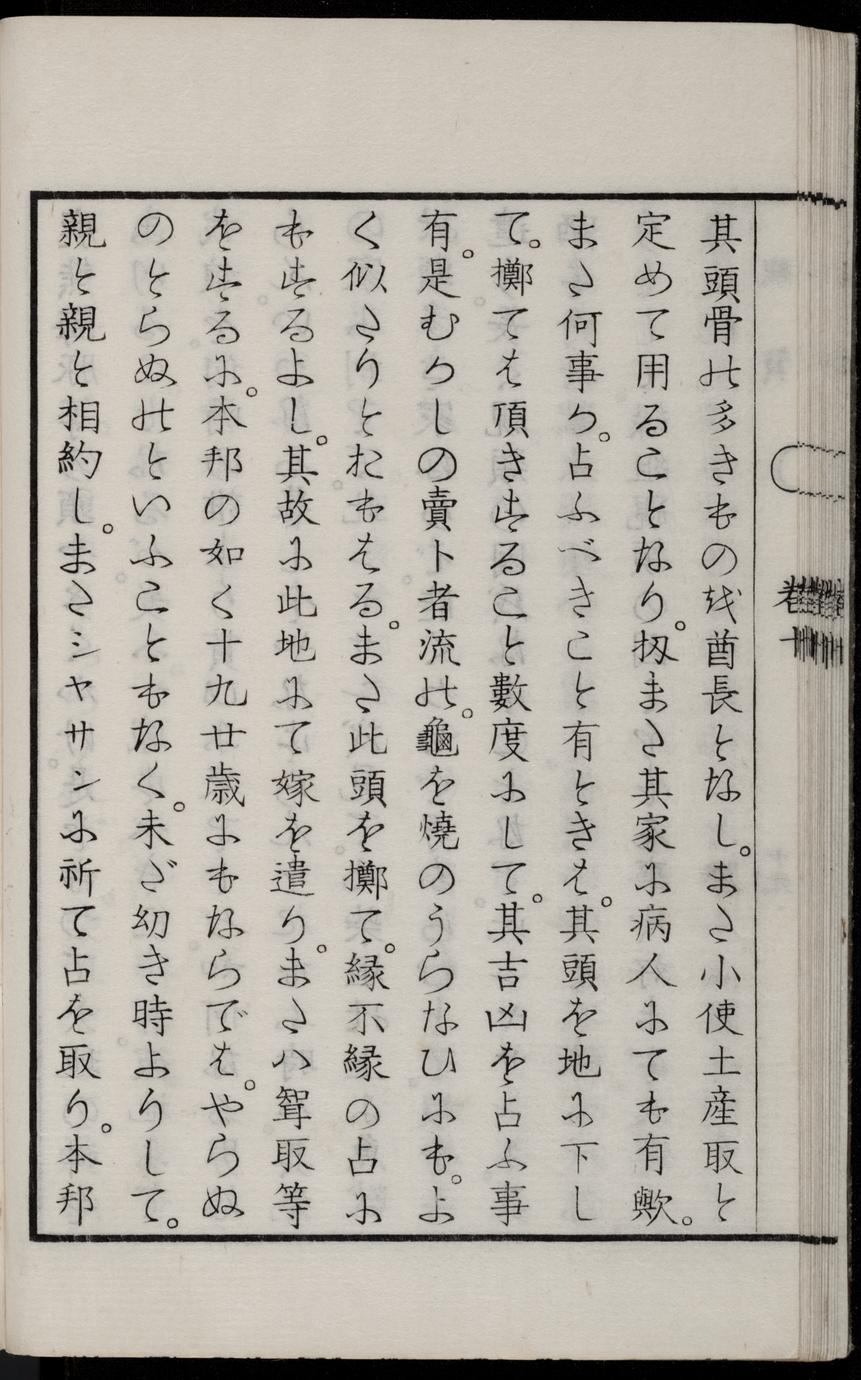 其頭骨の多きものを酋長となし。また小使土産取と
定めて用ることなり。扨また其家に病人にても有歟。
また何事か。占ふべきこと有ときは。其頭を地に下し
て。擲ては頂きすること數度にして。其吉凶を占ふ事
有。是むかしの賣卜者流の。龜を燒のうらなひにも。よ
く似たりとおもはる。また此頭を擲て。縁不縁の占に
もするよし。其故に此地にて嫁を遣り。または聟取等
をするに。本邦の如く十九廿歳にもならでは。やらぬ
のとらぬのといふこともなく。未だ幼き時よりして。
親と親と相約し。またシヤサンに祈て占を取り。本邦